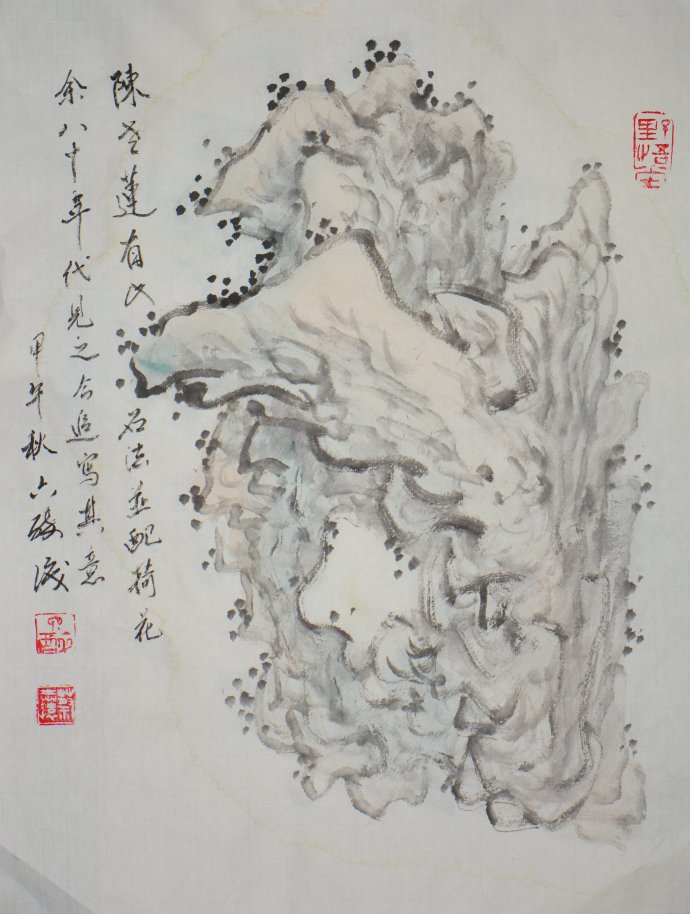 陳老蓮有此石法並配荷花
余八十年代見之今追寫其意
甲午秋六